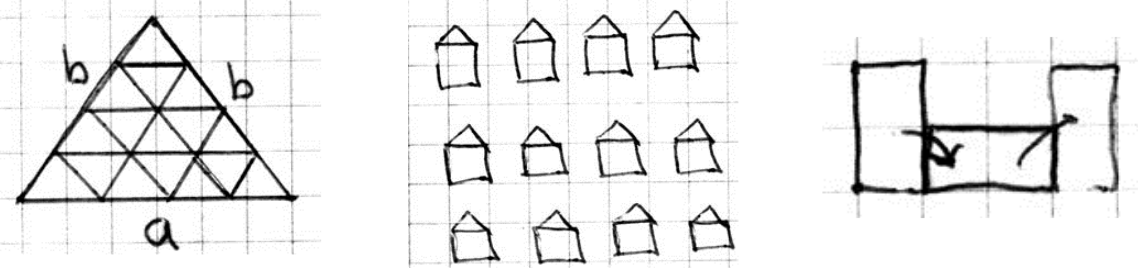 b
b
a